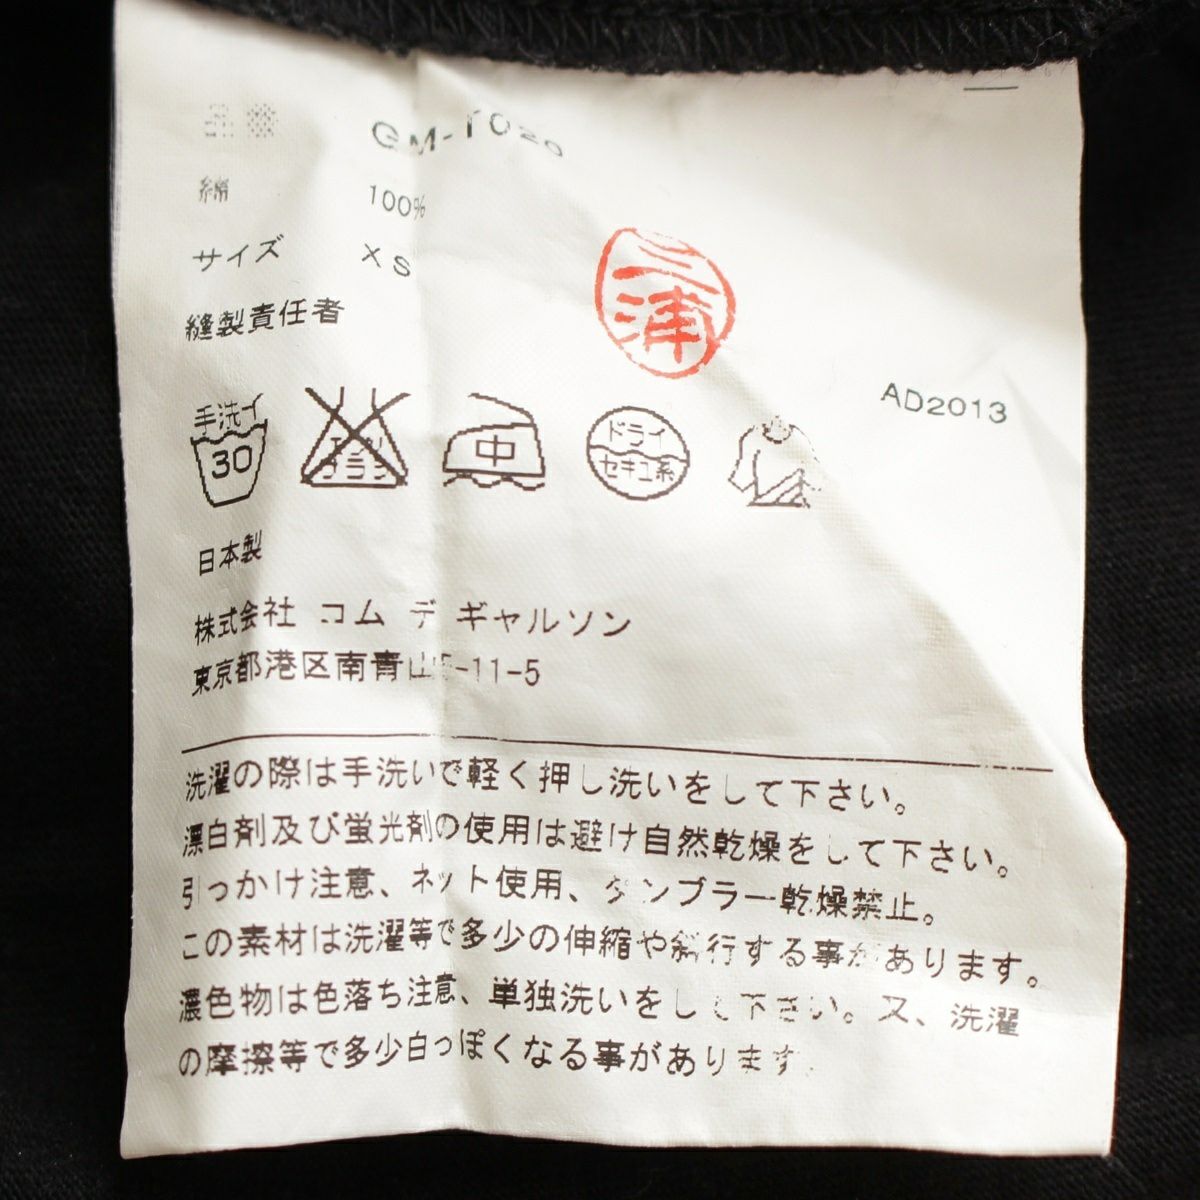 品番 GM-T020
綿 100%
サイズ XS
縫製責任者
三浦
AD2013
手洗イ
30
エンソ
サラシ
中
ドライ
セキユ系
日本製
株式会社 コム デ ギャルソン
東京都港区南青山5-11-5
洗濯の際は手洗いで軽く押し洗いをして下さい。
漂白剤及び蛍光剤の使用は避け自然乾燥をして下さい。
引っかけ注意、ネット使用、タンブラー乾燥禁止。
この素材は洗濯等で多少の伸縮や斜行する事があります。
濃色物は色落ち注意、単独洗いをして下さい。又、洗濯
の摩擦等で多少白っぽくなる事があります。